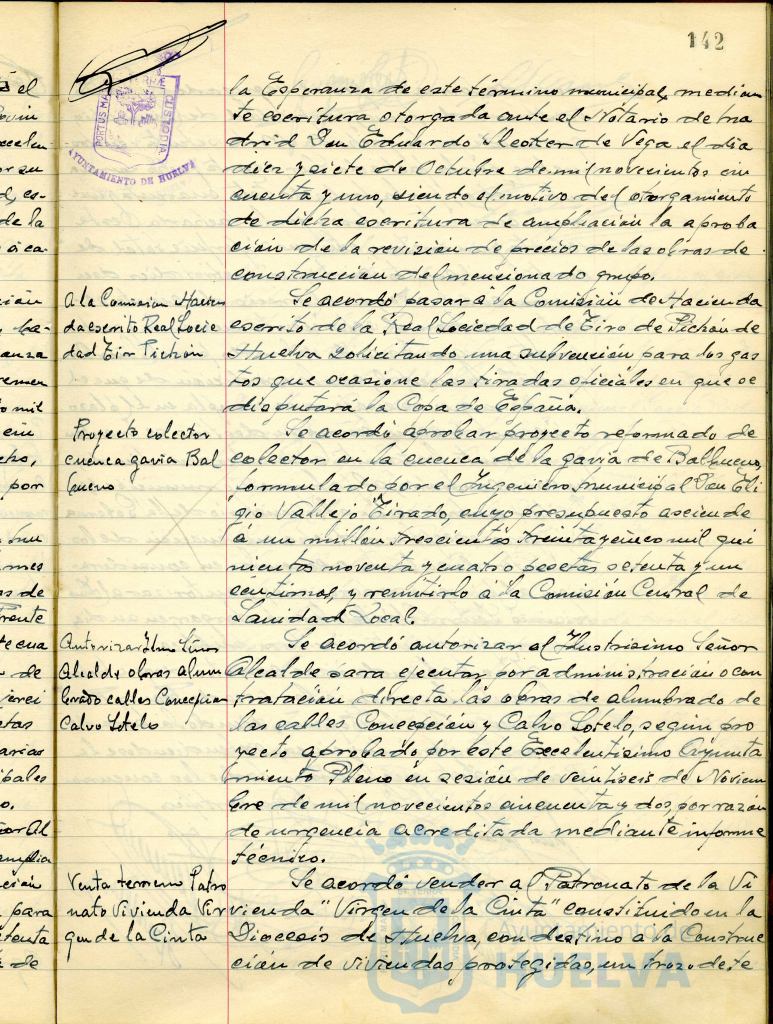 142
PORTUS MARIS ET TERRAE CUSTODIA
AYUNTAMIENTO DE HUELVA
la Esperanza de este término municipal, median
te escritura otorgada ante el Notario de Ma
drid Don Eduardo de Vega el dia
diez y siete de Octubre de mil novecientos cin
cuenta y uno, siendo el motivo del otorgamiento
de dicha escritura de ampliación la aproba
ción de la revisión de precios de las obras de
construcción del mencionado grupo.
A la Comision Hacien
da escrito Real Socie
dad Tiro Pichón
Se acordó pasar á la Comisión de Hacienda
escrito de la Real Sociedad de Tiro de Pichón de
Huelva solicitando una subvención para los gas
tos que ocasione las tiradas oficiales en que se
disputará la Copa de España.
Proyecto colector
cuenca gavia Bal
bueno
Se acordó aprobar proyecto reformado de
colector en la cuenca de la gavia de Balbueno,
formulado por el Ingeniero municipal Don Eli
gio Vallejo Tirado, cuyo presupuesto asciende
á un millón trescientas treinta y cinco mil qui
nientas noventa y cuatro pesetas setenta y un
centimos, y remitirlo á la Comisión Central de
Sanidad Local.
Autorizar Ilmo Señor
Alcalde obras alum
brado calles Concepcion
Calvo Sotelo
Se acordó autorizar al Ilustrisimo Señor
Alcalde para ejecutar por administración o con
tratación directa las obras de alumbrado de
las calles Concepción y Calvo Sotelo, según pro
yecto aprobado por este Excelentisimo Ayunta
miento Pleno en sesión de veintiseis de Noviem
bre de mil novecientos cincuenta y dos, por razón
de urgencia acreditada mediante informe
técnico.
Venta terreno Patro
nato Vivienda Vir
gen de la Cinta
Se acordó vender al Patronato de la Vi
vienda "Virgen de la Cinta" constituido en la
Diocesis de Huelva, con destino a la Construc
ción de viviendas protegidas, un trozo de te
Ayuntamiento de
HUELVA